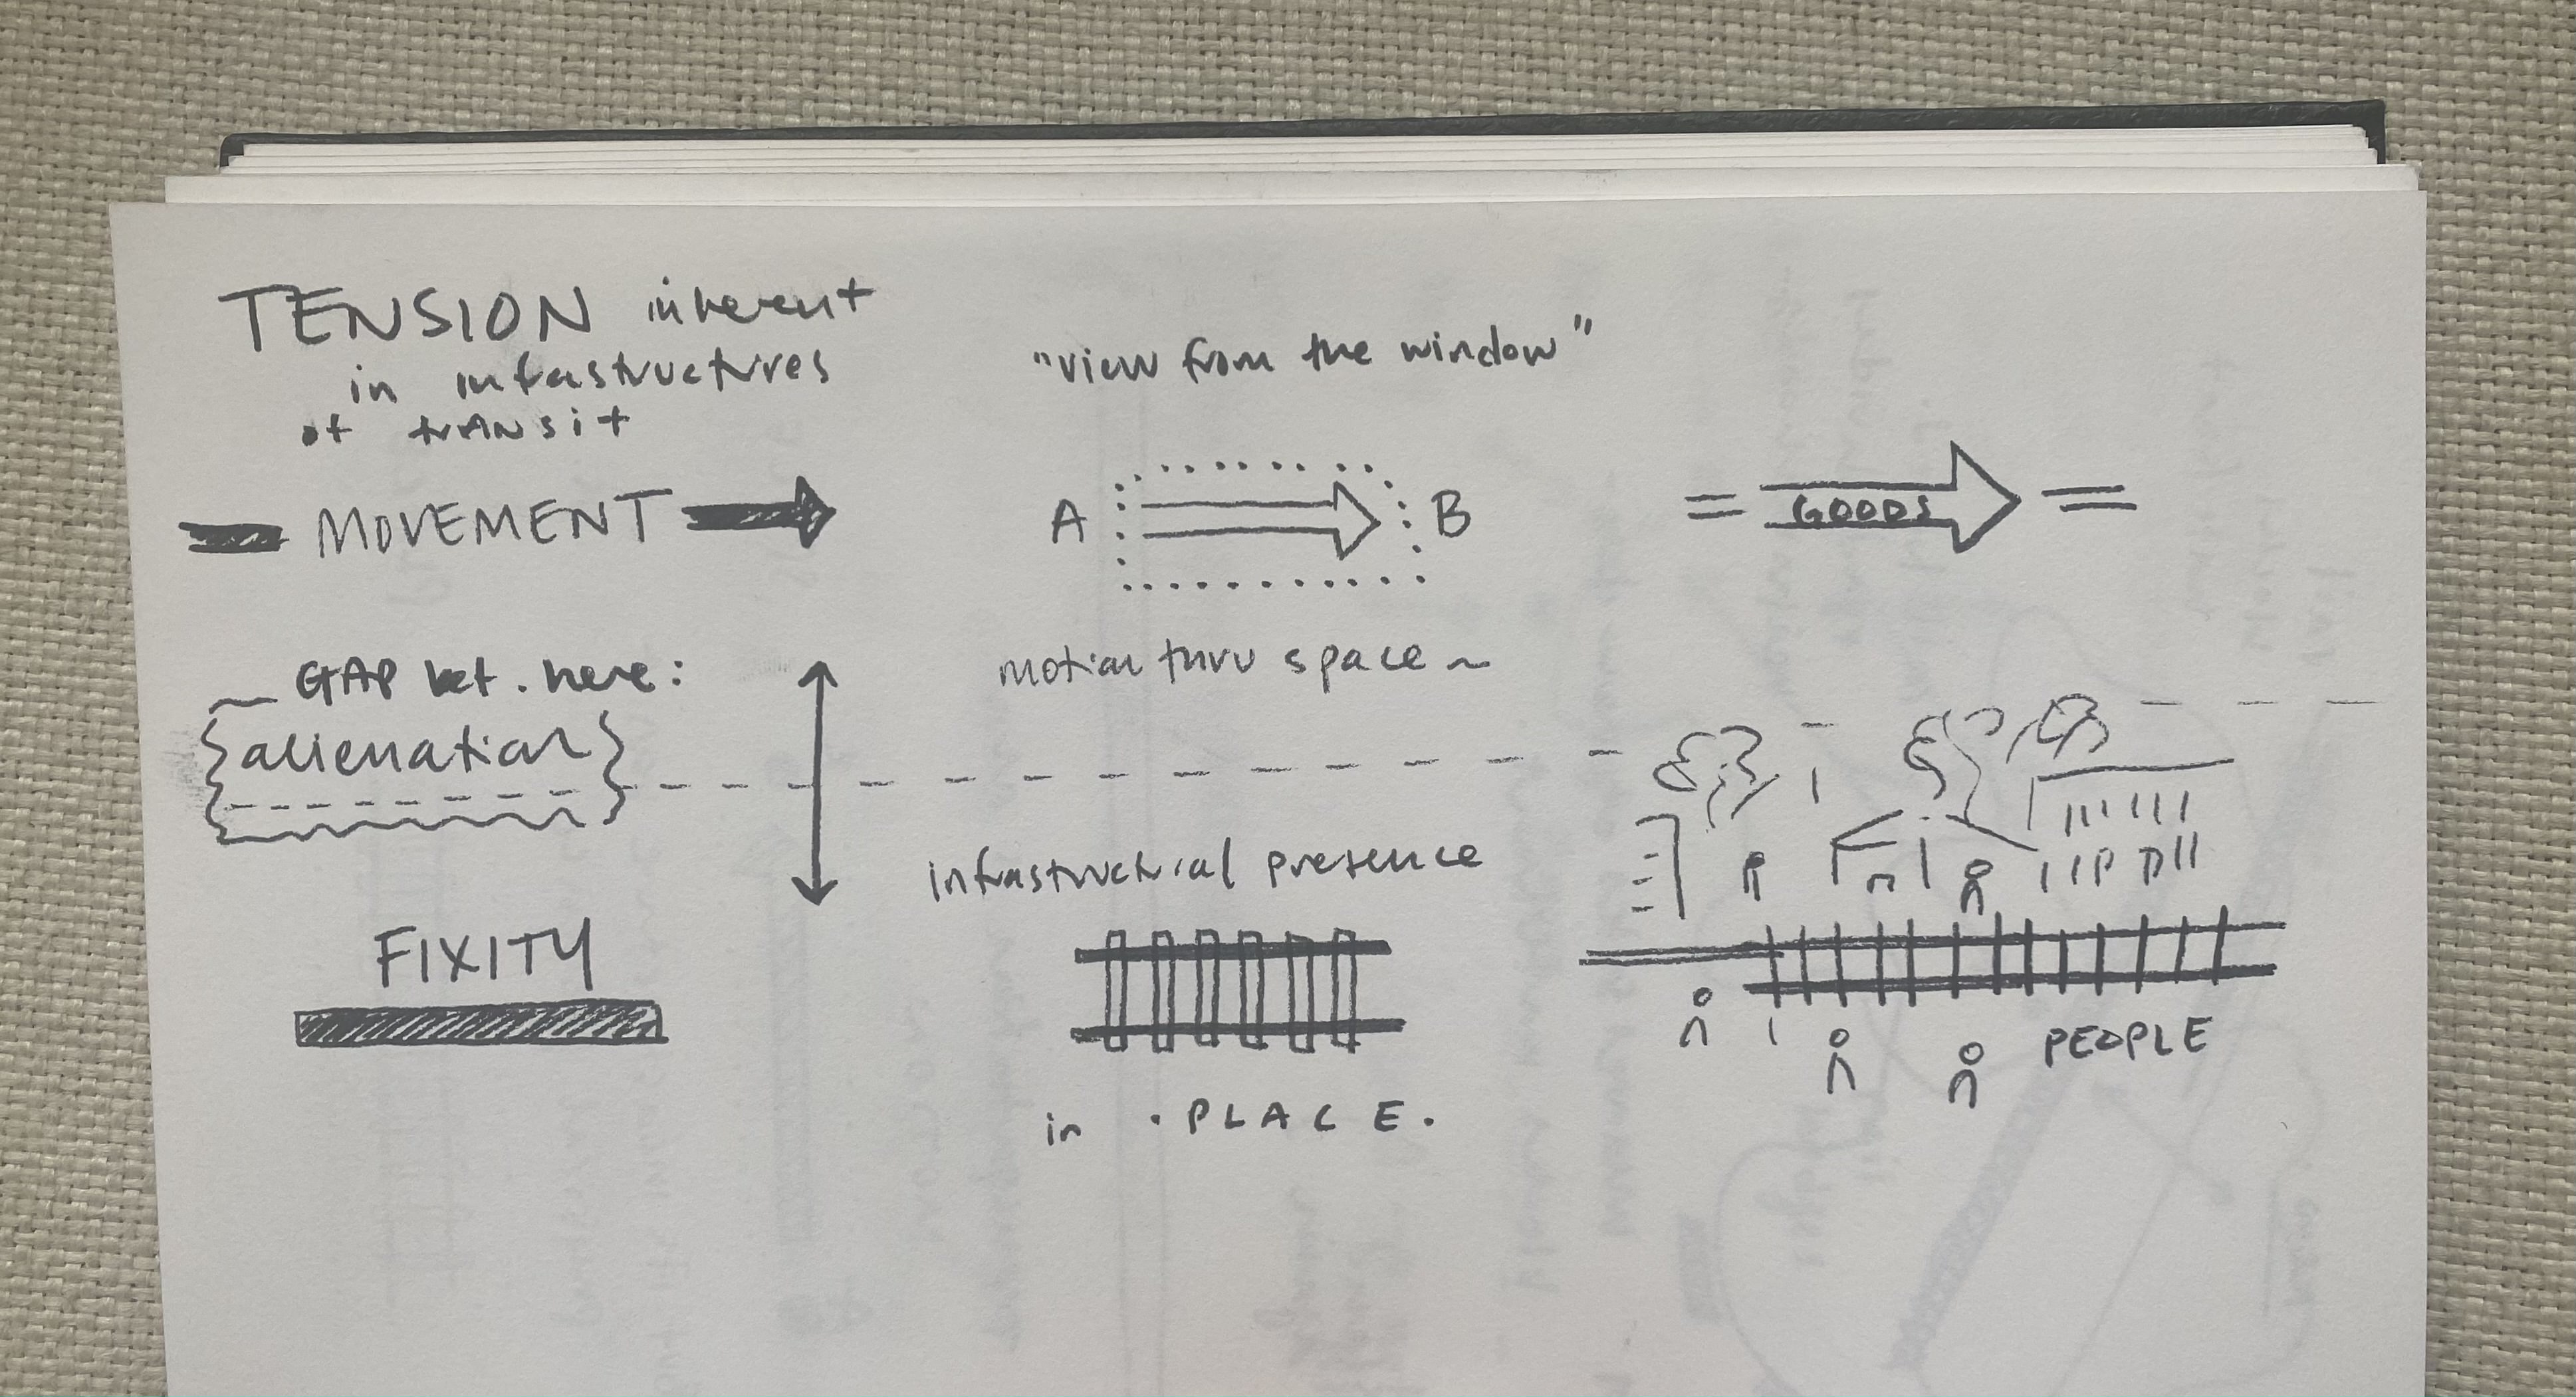 TENSION inherent
in infastructures
of transit
MOVEMENT
"view from the window"
A B
GOODS
GAP bet. here:
alienation
motion thru space ~
infrastructural presence
FIXITY
in . PLACE .
PEOPLE